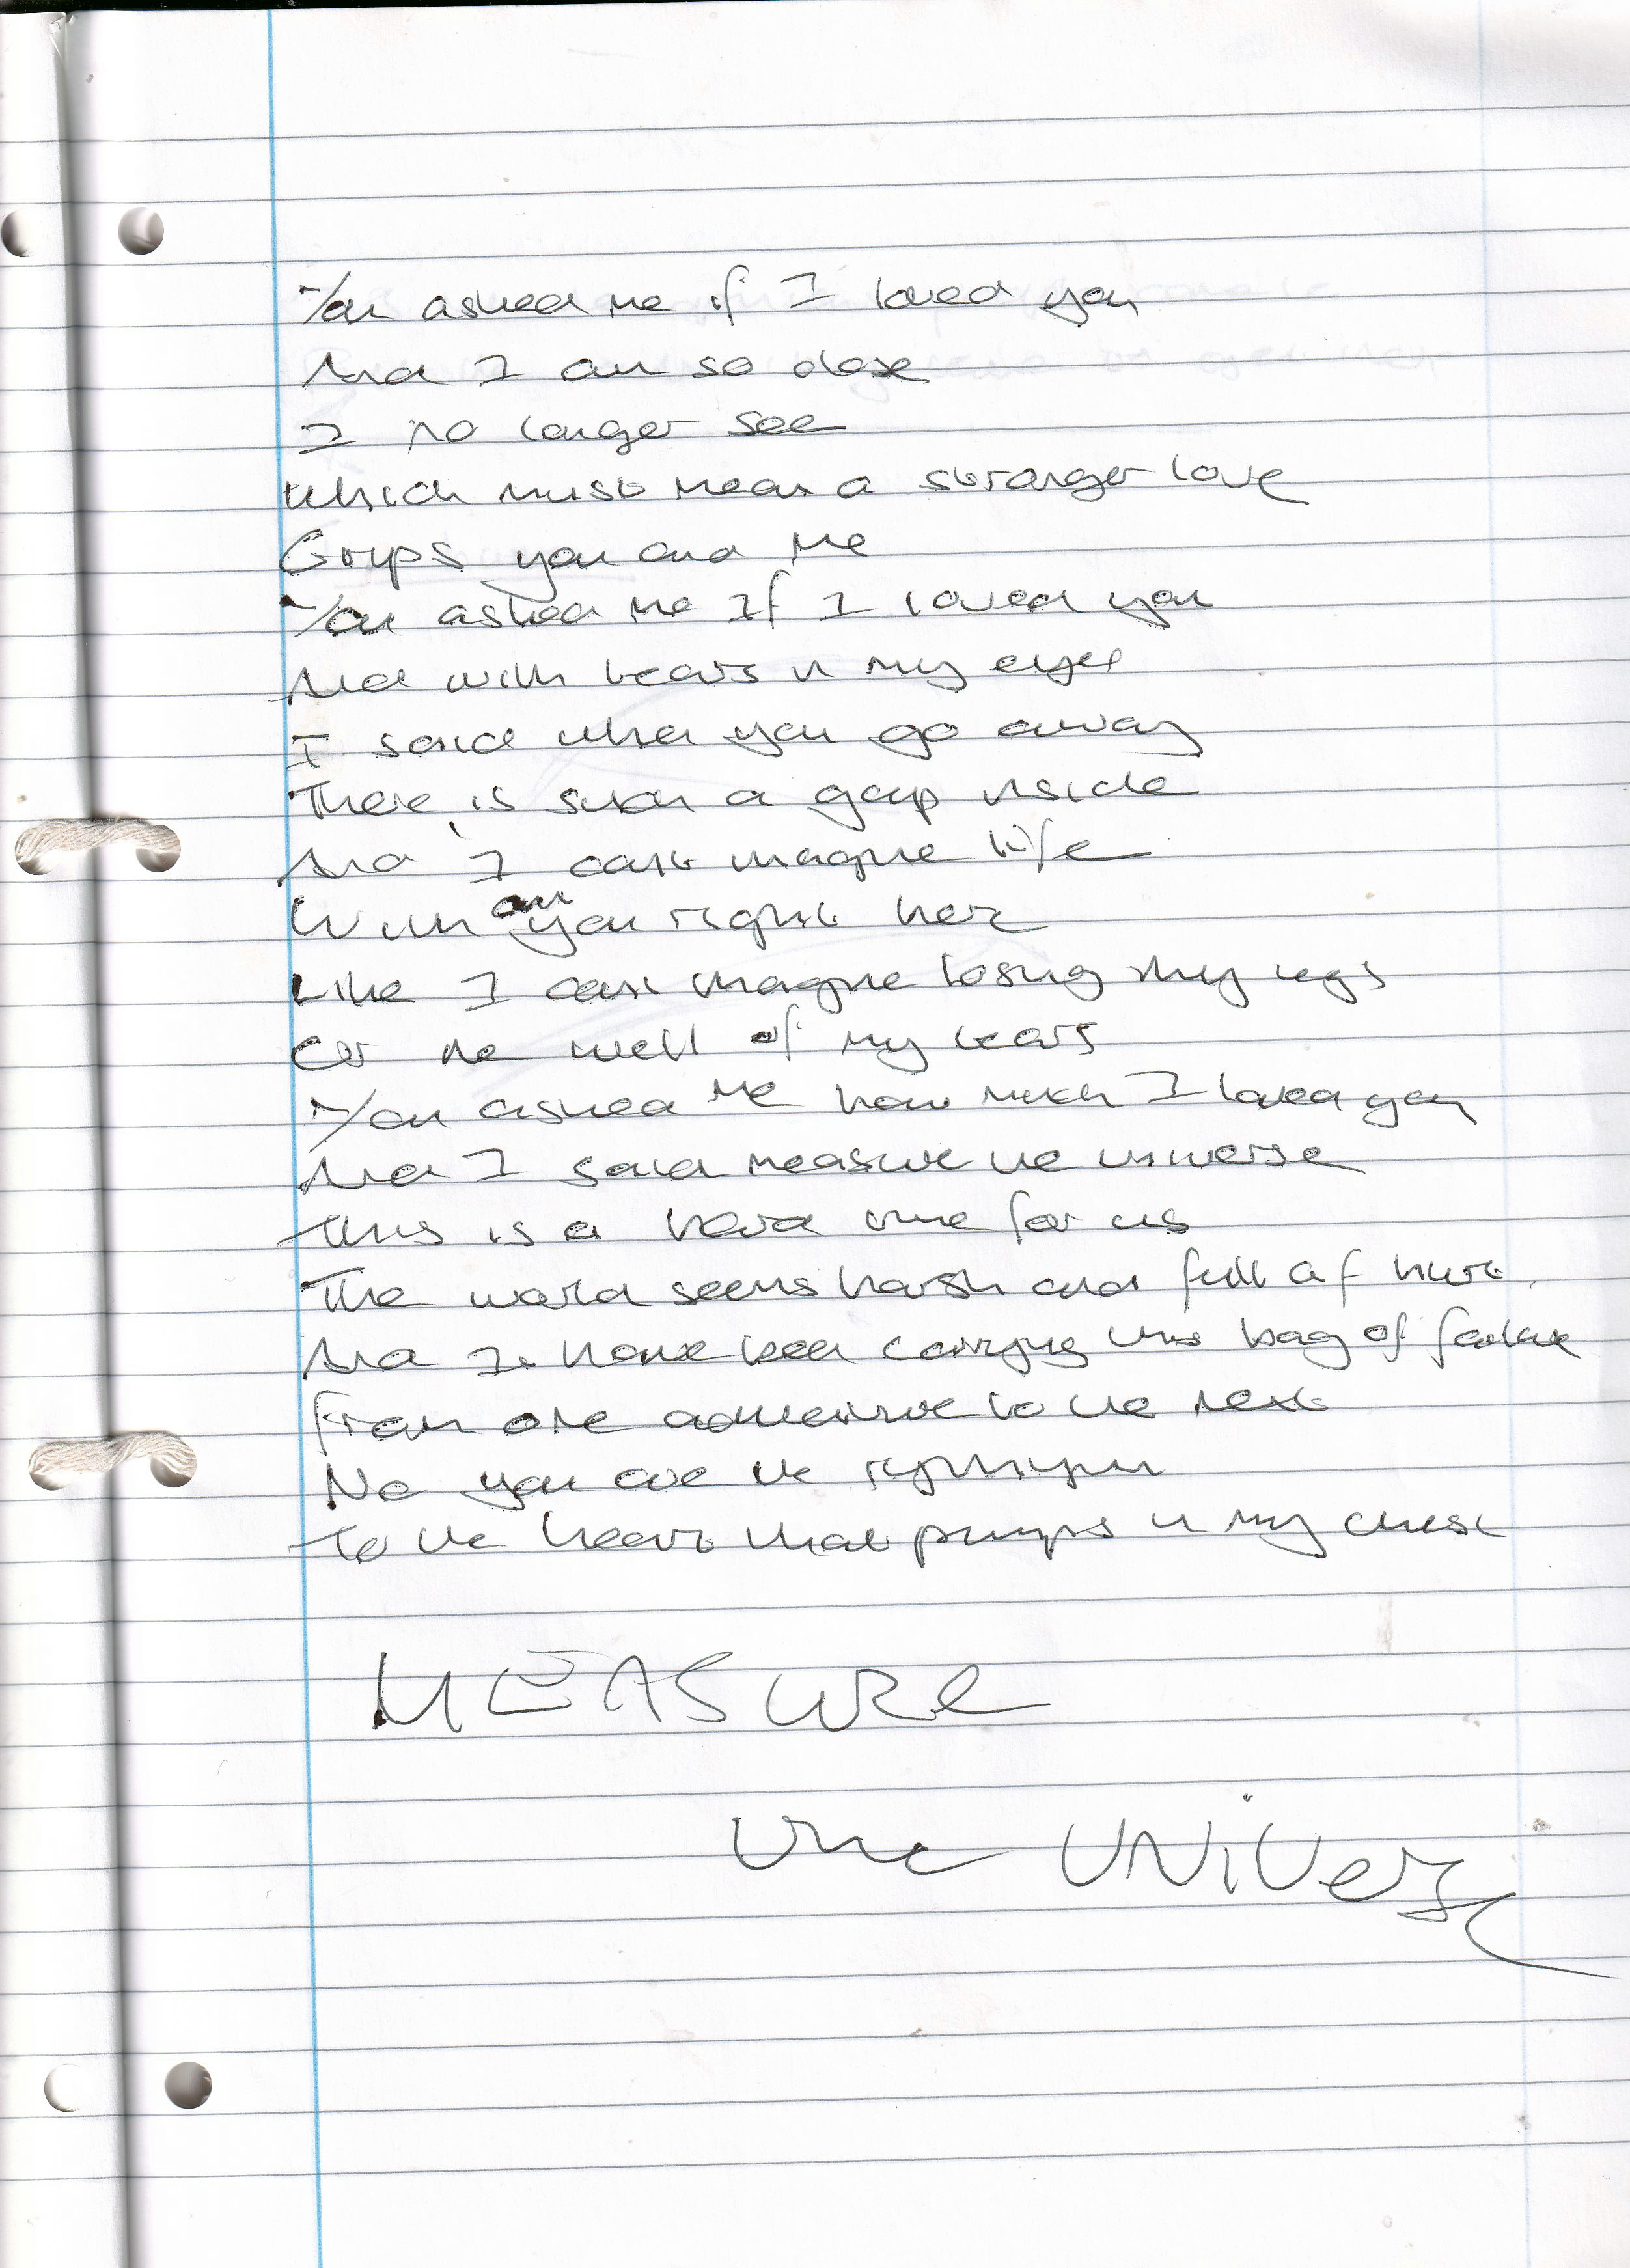 You asked me if I loved you
And I am so close
I no longer see
Which must mean a stranger love
Grips you and me
You asked me If I loved you
And with tears in my eyes
I said when you go away
There is such a gap inside
And I cant imagine life
Without you right here
Like I cant imagine losing my legs
Or the well of my tears
You asked me how much I loved you
And I said measure the universe
This is a hard time for us
The world seems harsh and full of hurt
And I have been carrying this bag of failure
From one adventure to the next
No you are the
To the heart that pumps in my chest
MEASURE
the UNIVERSE